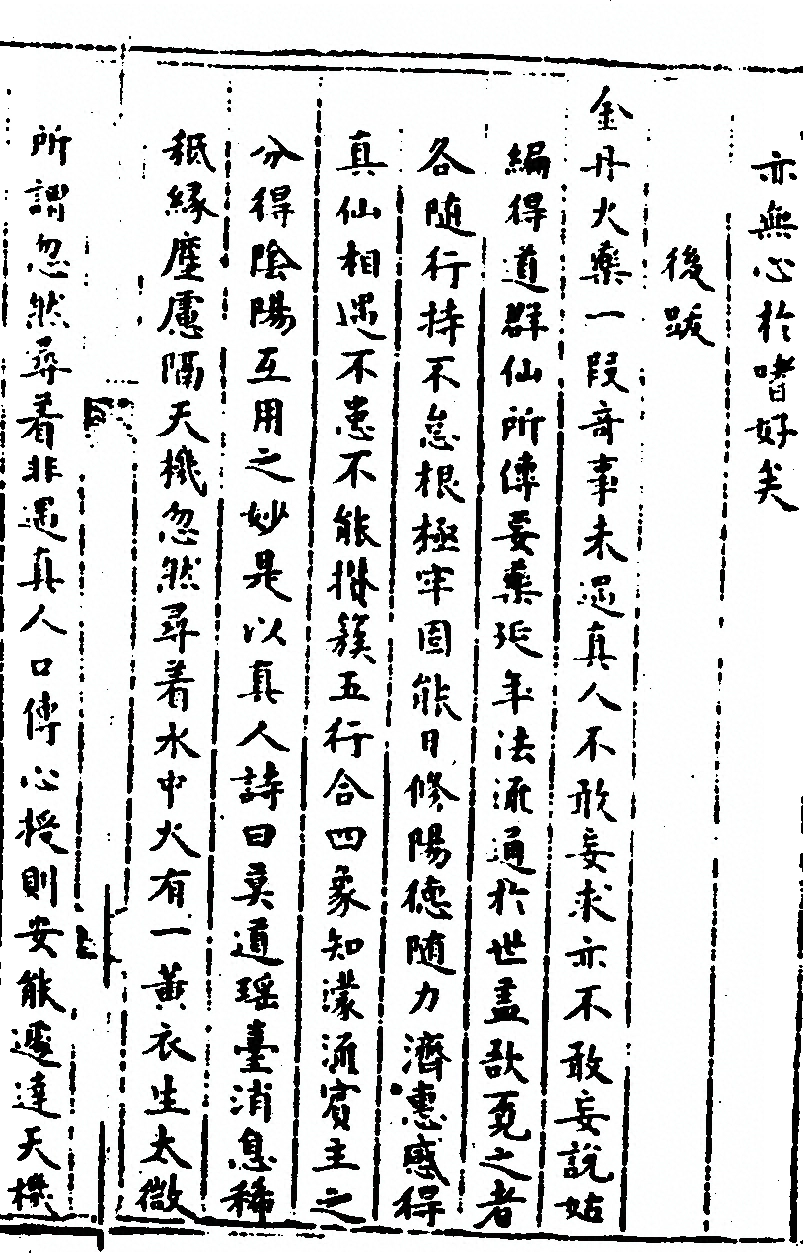 亦無心於嗜好矣
後跋
金丹火藥一段竒事未遇真人不敢妄求亦不敢妄說姑
編得道群仙所傳妥藥延年法流通於世蓋欲覓之者
各随行持不怠根極牢固能日修陽德随力濟惠感得
真仙相遇不患不能攅簇五行合四象知濛流賓主之
分得陰陽互用之妙是以真人詩曰莫道瑶臺消息稀
秪緣塵慮隔天機忽然尋着水中火有一黄衣生太微
所謂忽然尋着非遇真人口傳心授則安能遽達天機